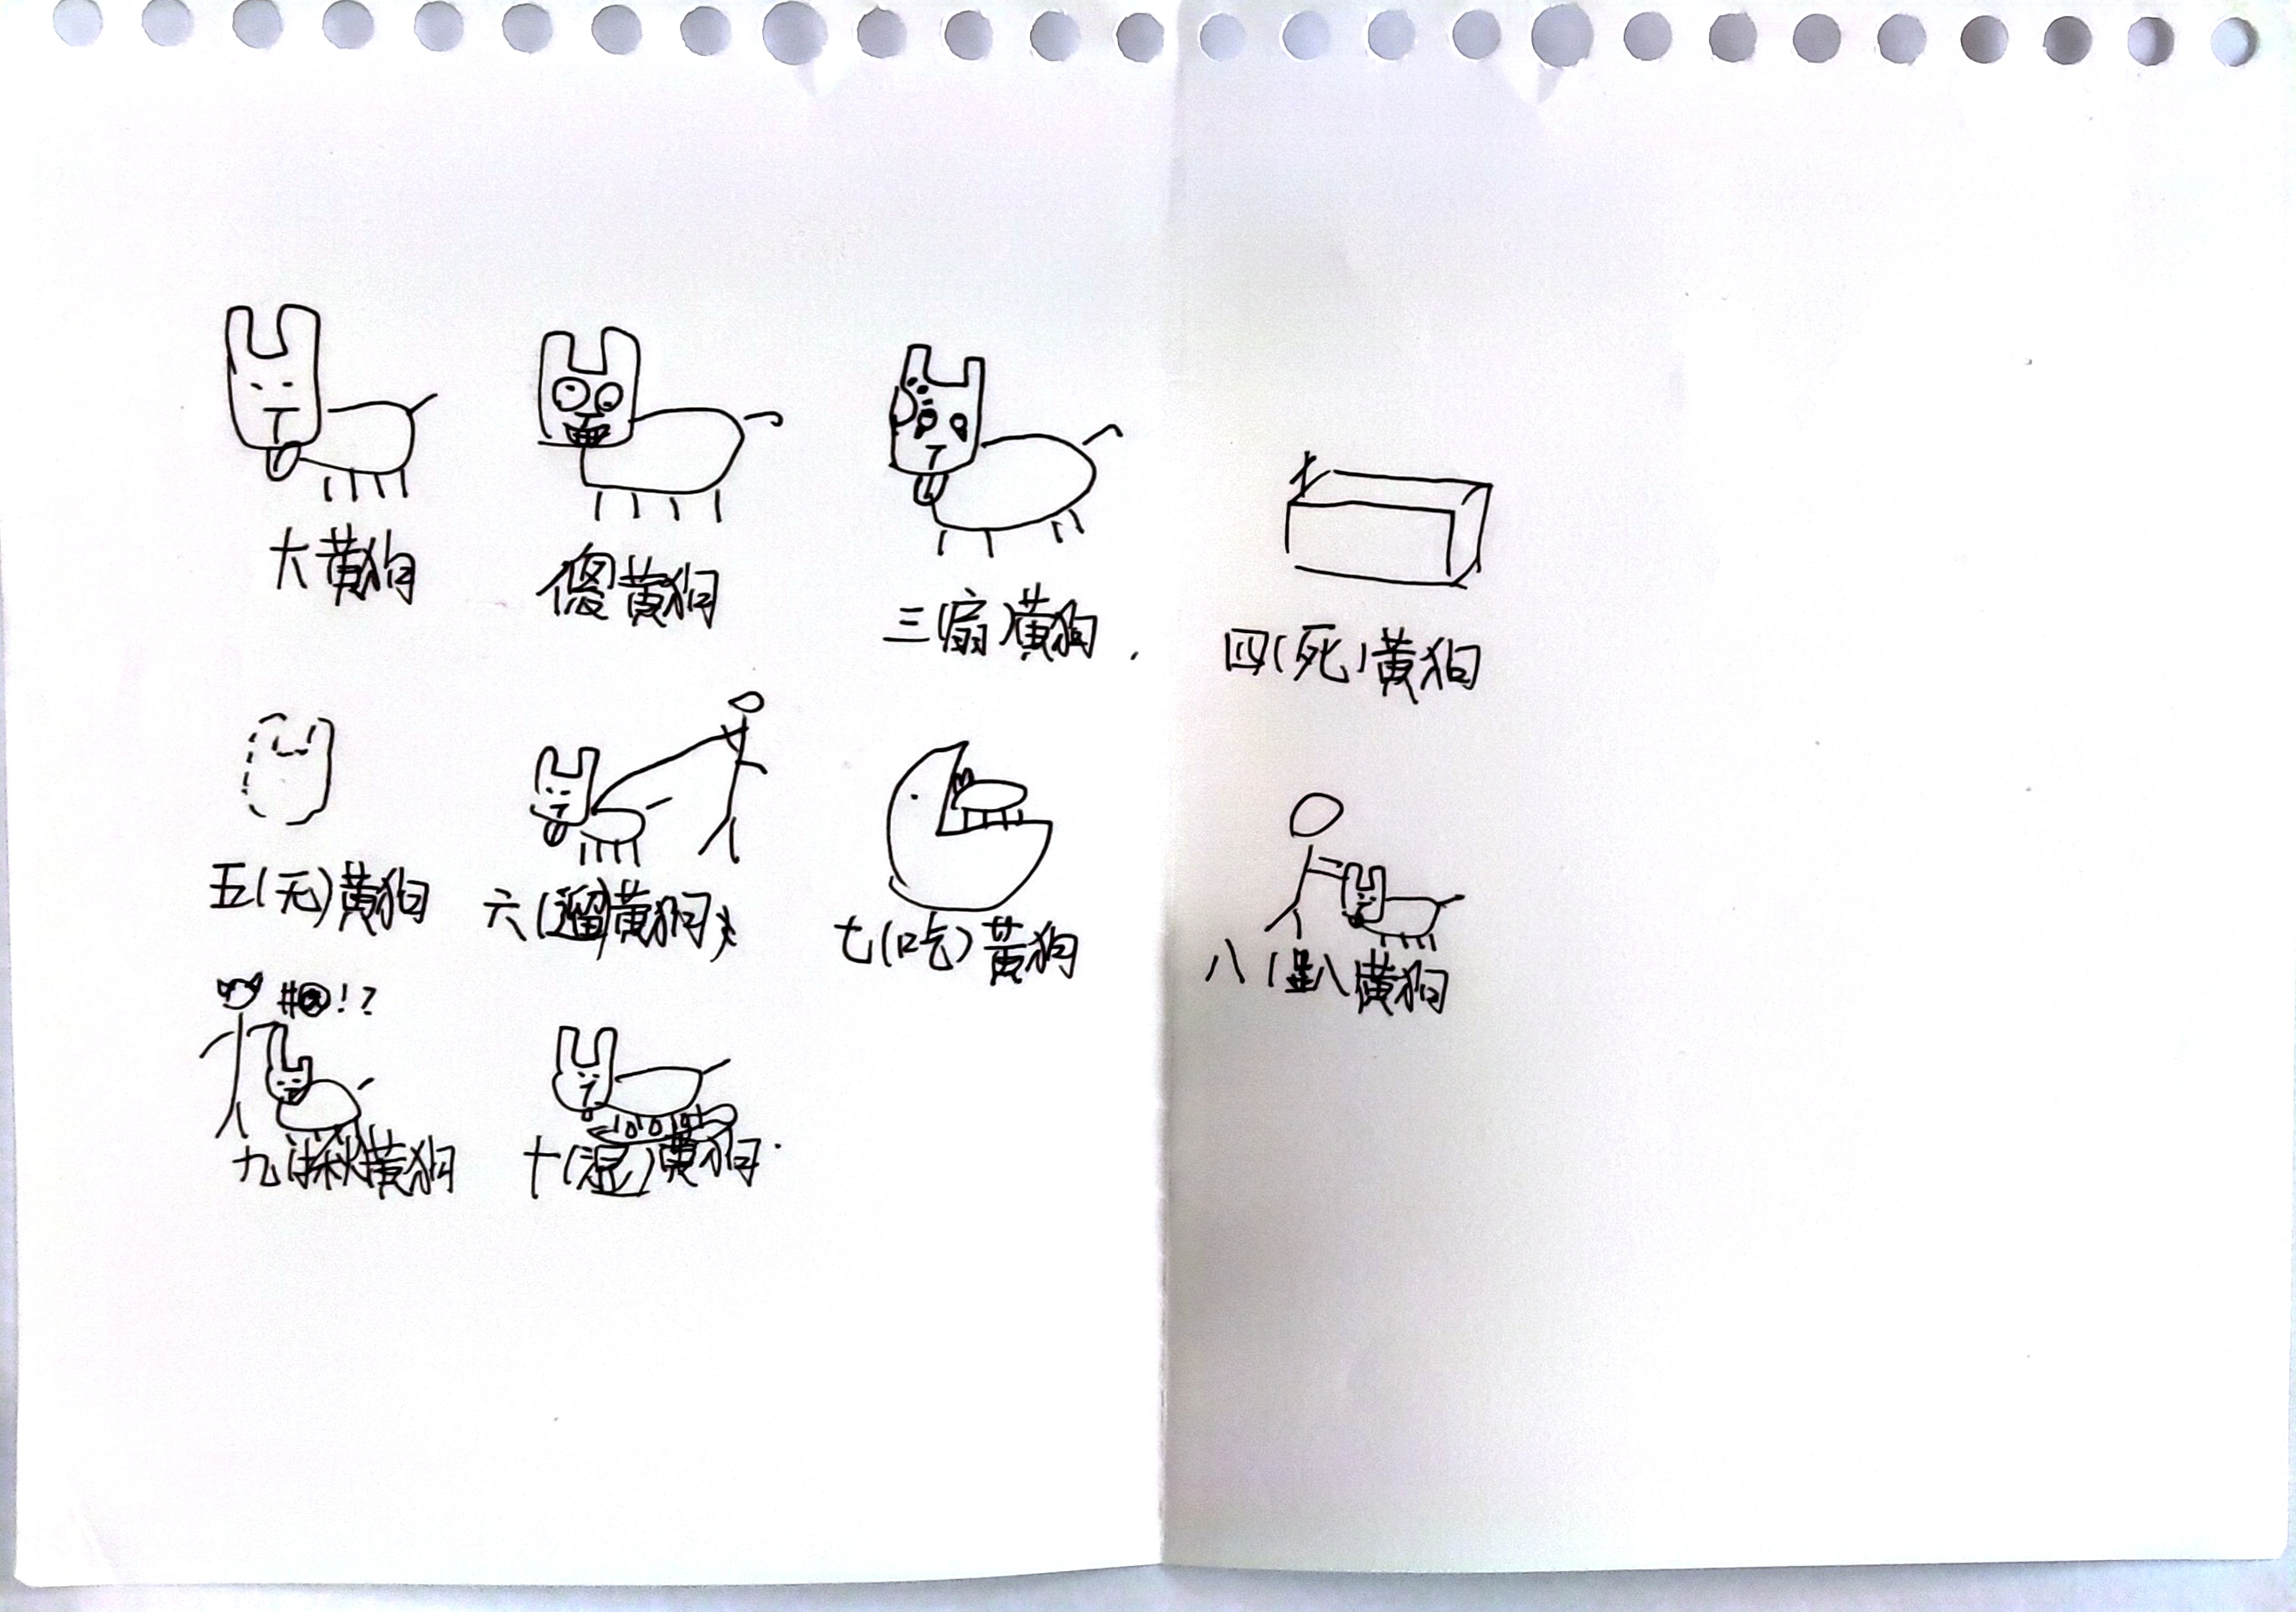 大黄狗
傻黄狗
三(扇)黄狗.
四(死)黄狗
五(无)黄狗
六(遛)黄狗
七(吃)黄狗
八(趴黄狗
#@!?
九(揪黄狗
十(混)黄狗.